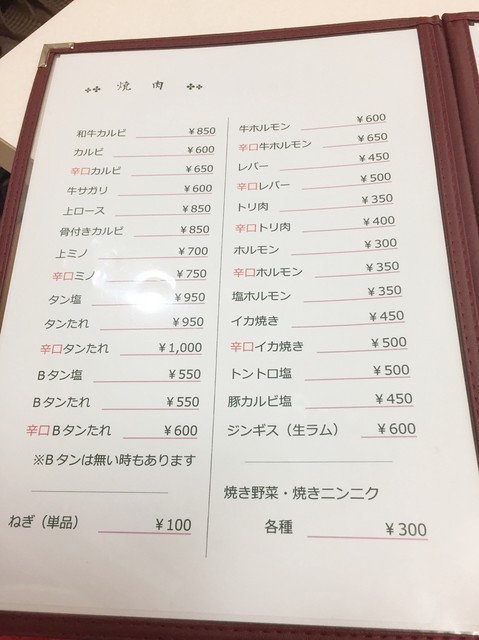 焼肉
和牛カルビ ¥850
カルビ ¥600
辛口カルビ ¥650
牛サガリ ¥600
上ロース ¥850
骨付きカルビ ¥850
上ミノ ¥700
辛口ミノ ¥750
タン塩 ¥950
タンたれ ¥950
辛口タンたれ ¥1,000
Bタン塩 ¥550
Bタンたれ ¥550
辛口Bタンたれ ¥600
※Bタンは無い時もあります
ねぎ（単品） ¥100
牛ホルモン ¥600
辛口牛ホルモン ¥650
レバー ¥450
辛口レバー ¥500
トリ肉 ¥350
辛口トリ肉 ¥400
ホルモン ¥300
辛口ホルモン ¥350
塩ホルモン ¥350
イカ焼き ¥450
辛口イカ焼き ¥500
トントロ塩 ¥500
豚カルビ塩 ¥450
ジンギス（生ラム） ¥600
焼き野菜・焼きニンニク
各種 ¥300